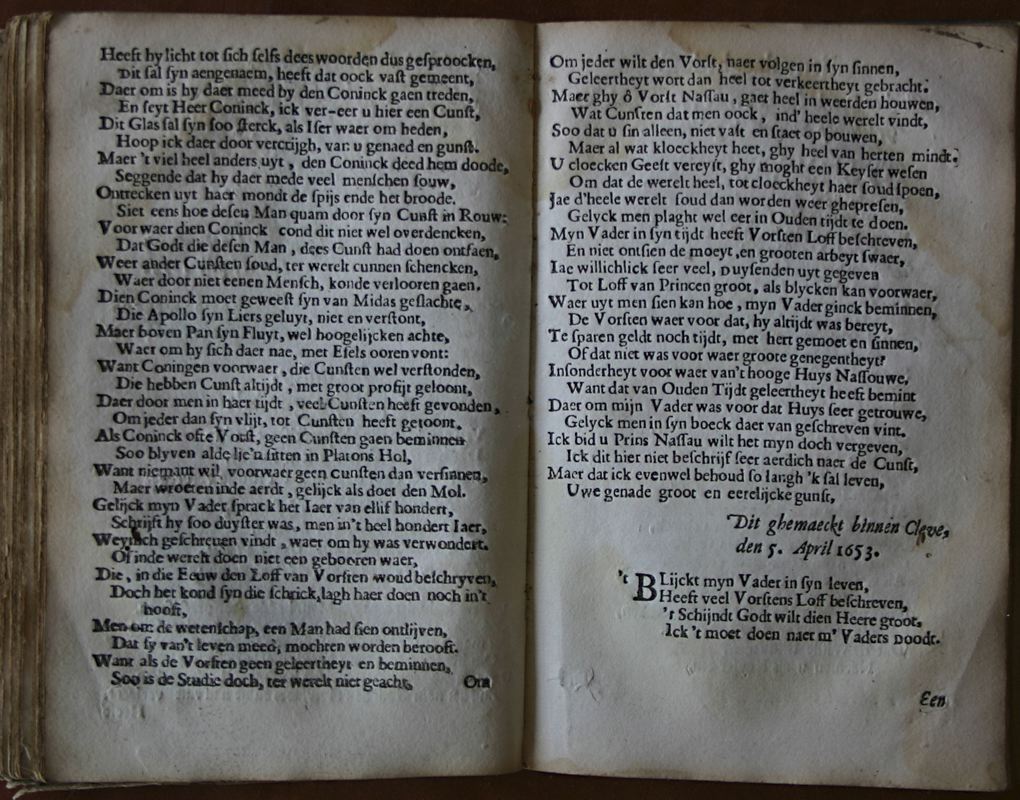 Heeft hy licht tot sich selfs dees woorden dus gesproocken,
Dit sal syn aengenaem, heeft dat oock vast gemeent,
Daer om is hy daer meed by den Coninck gaen treden,
En seyt Heer Coninck, ick ver-eer u hier een Cunst,
Dit Glas sal syn soo sterck, als Iser waer om heden,
Hoop ick daer door vercrijgh, van u genaed en gunst.
Maer 't viel heel anders uyt, den Coninck deed hem doode,
Seggende dat hy daer mede veel menschen souw,
Ontrecken uyt haer mondt de spijs ende het broode.
Siet eens hoe desen Man quam door syn Cunst in Rouw:
Voorwaer dien Coninck cond dit niet wel overdencken,
Dat Godt die desen Man, dees Cunst had doen ontfaen,
Weer ander Cunsten soud, ter werelt cunnen schencken,
Waer door niet eenen Mensch, konde verlooren gaen.
Dien Coninck moet geweest syn van Midas geslachte,
Die Apollo syn Liers geluyt, niet en verstont,
Maer boven Pan syn Fluyt, wel hoogelijcken achte,
Waer om hy sich daer nae, met Esels ooren vont:
Want Coningen voorwaer, die Cunsten wel verstonden,
Die hebben Cunst altijdt, met groot profijt geloont,
Daer door men in haer tijdt, veel Cunsten heeft gevonden,
Om jeder dan syn vlijt, tot Cunsten heeft getoont.
Als Coninck ofte Vorst, geen Cunsten gaen beminnen
Soo blyven alde lie'n sitten in Platons Hol,
Want niemant wil voorwaer geen cunsten dan versinnen,
Maer wroeten inde aerdt, gelijck als doet den Mol.
Gelijck myn Vader sprack het Iaer van ellif hondert,
Schrijft hy soo duyster was, men in't heel hondert Iaer,
Weynich geschreuen vindt, waer om hy was verwondert.
Of inde werelt doen niet een gebooren waer,
Die, in die Eeuw den Loff van Vorsten woud beschryven,
Doch het kond syn die schrick, lagh haer doen noch in't
hooft,
Men om de wetenschap, een Man had sien ontlijven,
Dat sy van't leven meed, mochten worden berooft.
Want als de Vorsten geen geleertheyt en beminnen,
Soo is de Studie doch, ter werelt niet geacht,
Om
Om jeder wilt den Vorst, naer volgen in syn sinnen,
Geleertheyt wort dan heel tot verkeertheyt gebracht:
Maer ghy ô Vorst Nassau, gaet heel in weerden houwen,
Wat Cunsten dat men oock, ind' heele werelt vindt,
Soo dat u sin alleen, niet vast en staet op bouwen,
Maer al wat kloeckheyt heet, ghy heel van herten mindt:
U cloecken Geest vereyst, ghy moght een Keyser wesen
Om dat de werelt heel, tot cloeckheyt haer soud spoen,
Jae d'heele werelt soud dan worden weer ghepresen,
Gelyck men plaght wel eer in Ouden tijdt te doen.
Myn Vader in syn tijdt heeft Vorsten Loff beschreven,
En niet ontsien de moeyt, en grooten arbeyt swaer,
Iae willichlick seer veel, Duysenden uyt gegeven
Tot Loff van Princen groot, als blycken kan voorwaer,
Waer uyt men sien kan hoe, myn Vader ginck beminnen,
De Vorsten waer voor dat, hy altijdt was bereyt,
Te sparen geldt noch tijdt, met hert gemoet en sinnen,
Of dat niet was voor waer groote genegentheyt?
Insonderheyt voor waer van't hooge Huys Nassouwe,
Want dat van Ouden Tijdt geleertheyt heeft bemint
Daer om mijn Vader was voor dat Huys seer getrouwe,
Gelyck men in syn boeck daer van geschreven vint.
Ick bid u Prins Nassau wilt het myn doch vergeven,
Ick dit hier niet beschrijf seer aerdich naer de Cunst,
Maer dat ick evenwel behoud so langh 'k sal leven,
Uwe genade groot en eerelijcke gunst,
Dit ghemaeckt binnen Cleve,
den 5. April 1653.
't Blijckt myn Vader in syn leven,
Heeft veel Vorstens Loff beschreven,
't Schijndt Godt wilt dien Heere groot,
Ick 't moet doen naer m' Vaders Doodt.
Een